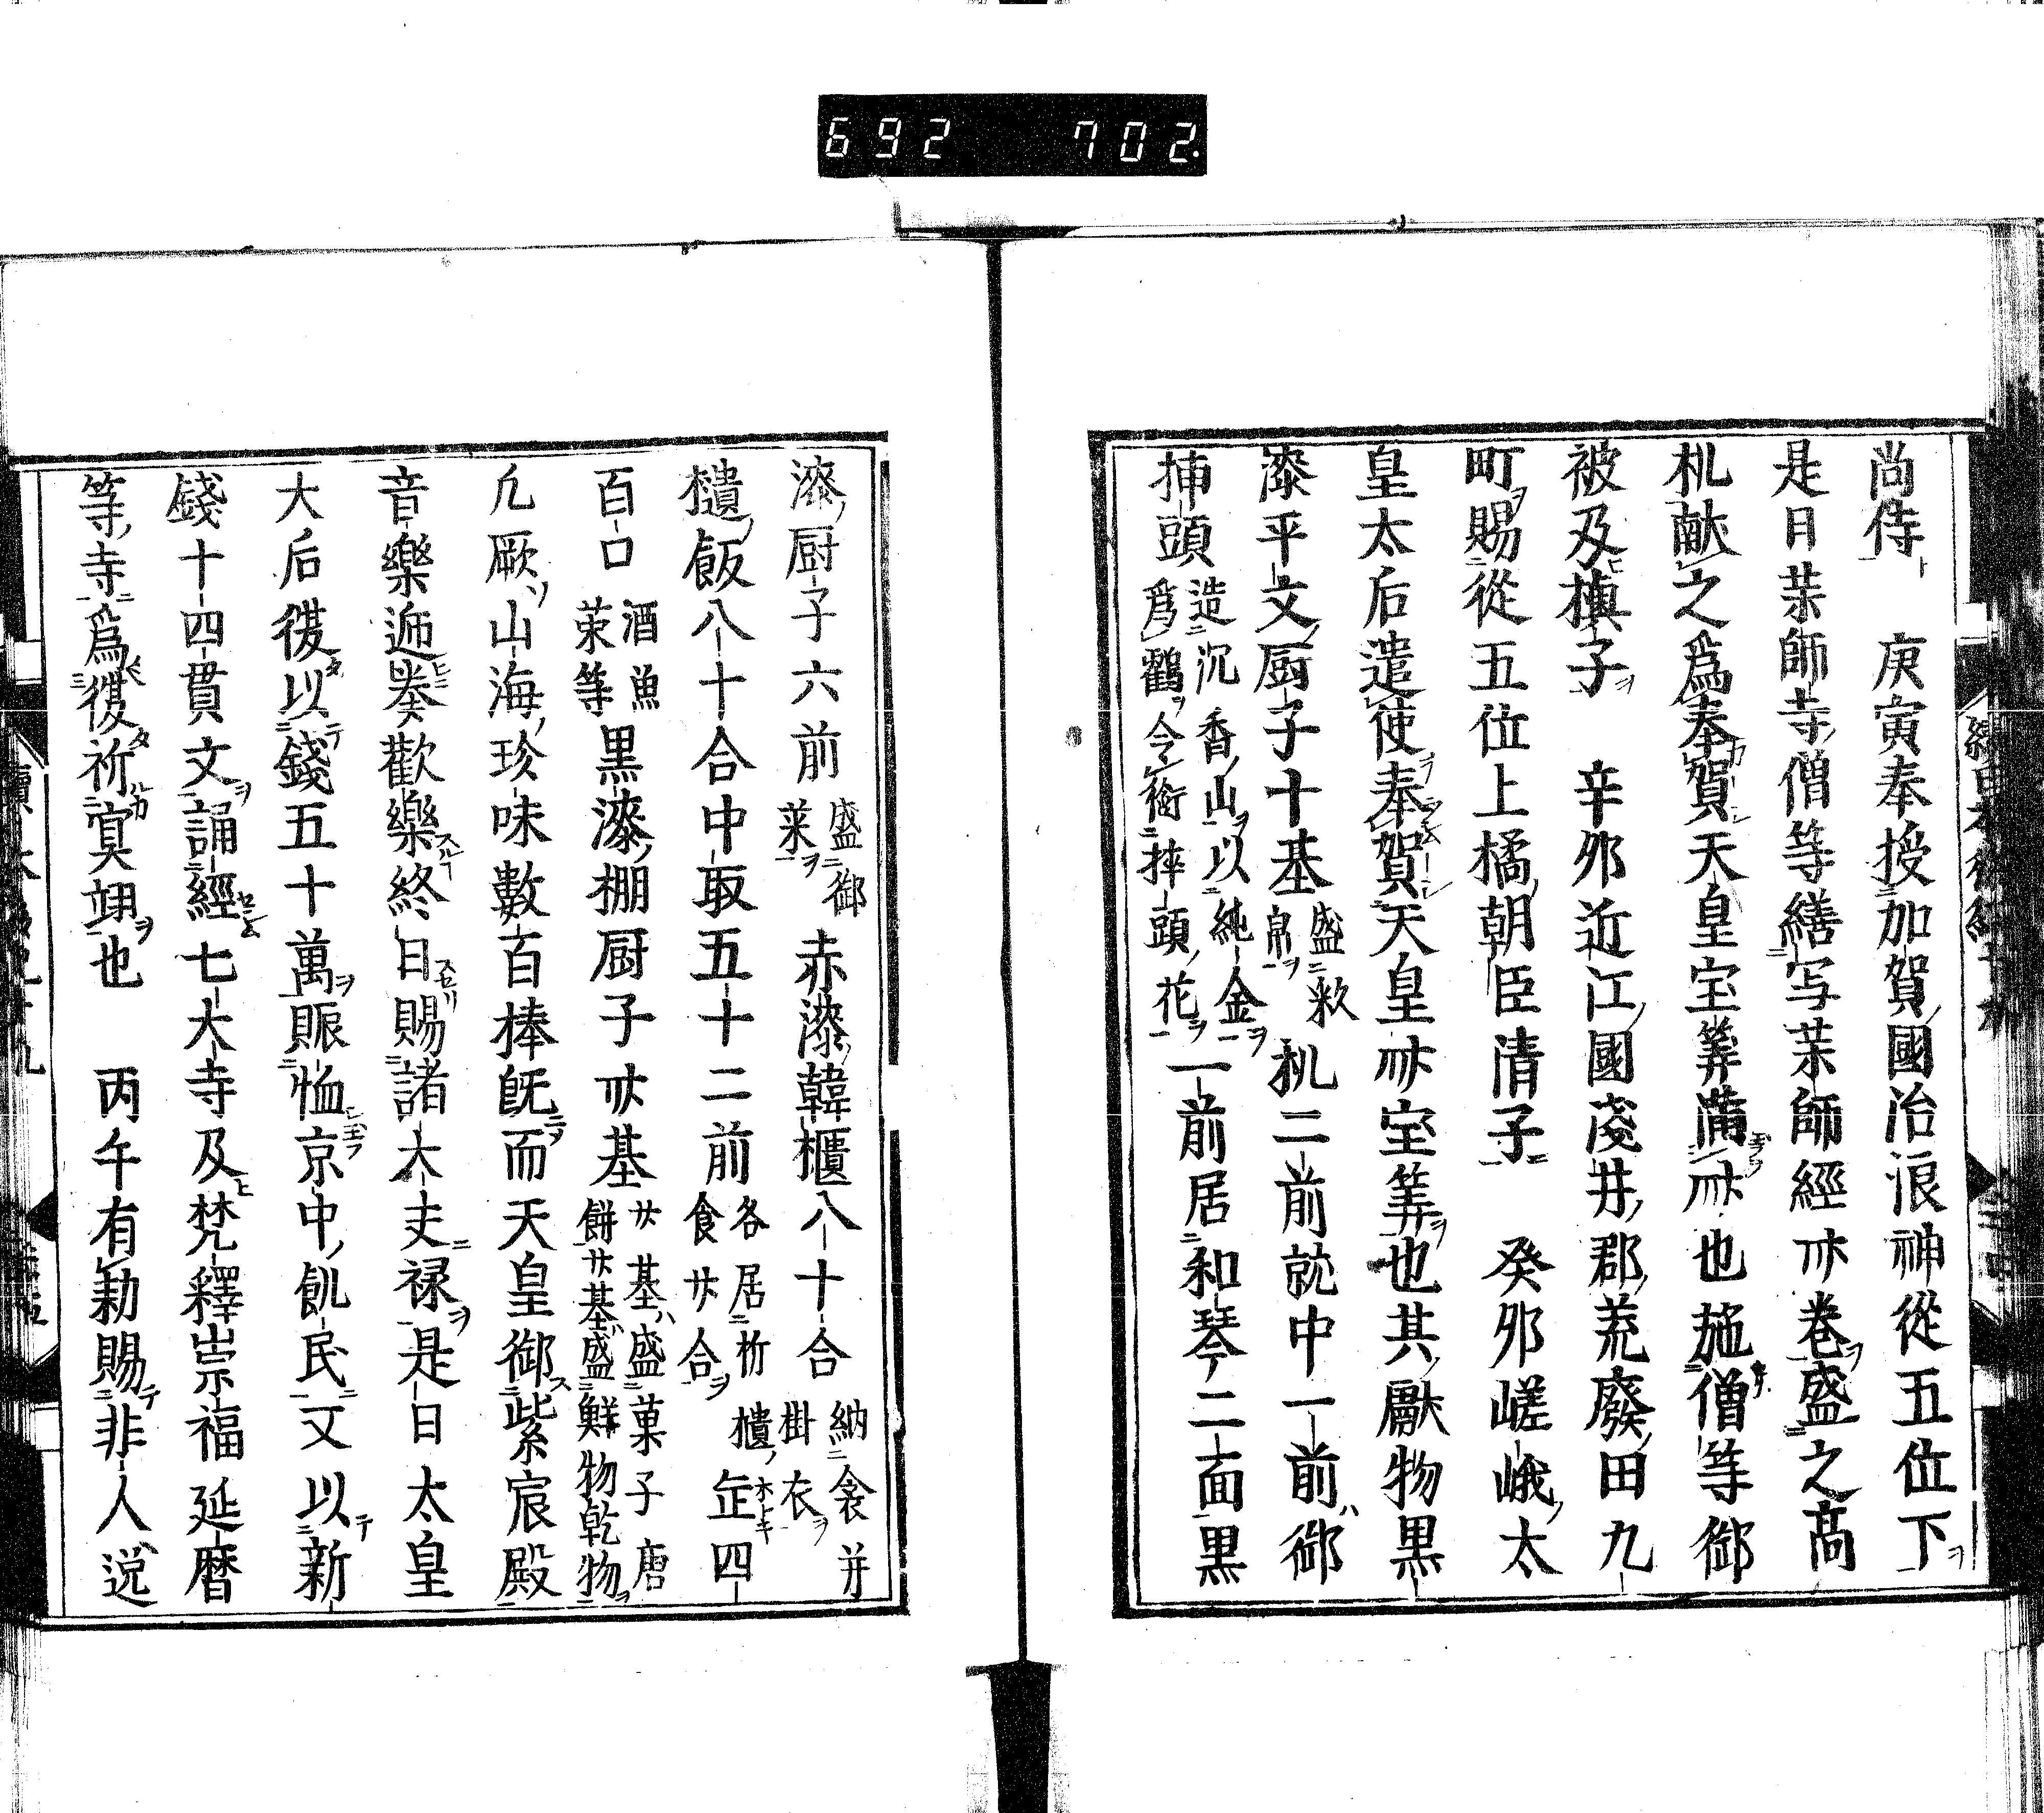 692 702.
尚侍 庚寅奉授加賀國治浪神從五位下
是日薬師寺僧等繕写薬師經卌卷盛之高
机献之爲奉賀天皇宝筭滿卌也施僧等御
被及槙子 辛夘近江國淺井郡荒廢田九
町賜從五位上橘朝臣清子 癸夘嵯峨太
皇太后遣使奉賀天皇卌宝筭也其獻物黒
漆平文厨子十基
盛敕
帛
机二前就中一前御
挿頭
造沉香山以純金
爲鶴令銜挿頭花
一前居和琴二面黒
漆厨子六前
盛御
菜
赤漆韓櫃八十合
納衾并
掛衣
櫃飯八十合中取五十二前
各居析櫃
食廿合
缶四
百口
酒魚
菜等
黒漆棚厨子卌基
廿基盛菓子唐
餅廿基盛鮮物乾物
凢厥山海珍味數百捧旣而天皇御紫宸殿
音樂逓奏歡樂終日賜諸大夫禄是日太皇
大后復以錢五十萬賑恤京中飢民又以新
錢十四貫文誦經七大寺及梵釋崇福延暦
等寺爲復祈寞翊也 丙午有勅賜非人逃